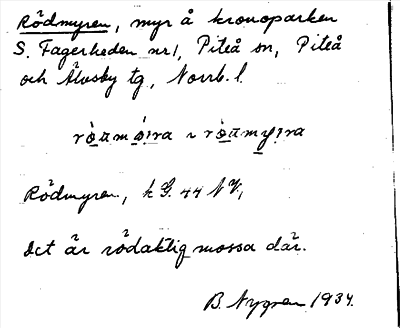 Rödmyren, myr å kronoparken
S. Fagerheden nr 1, Piteå sn, Piteå
och Älvsby tg, Norrb. l.
Rödmyren, k G. 44 NV,
det är rödaktig mossa där.
B. Nygren 1934.